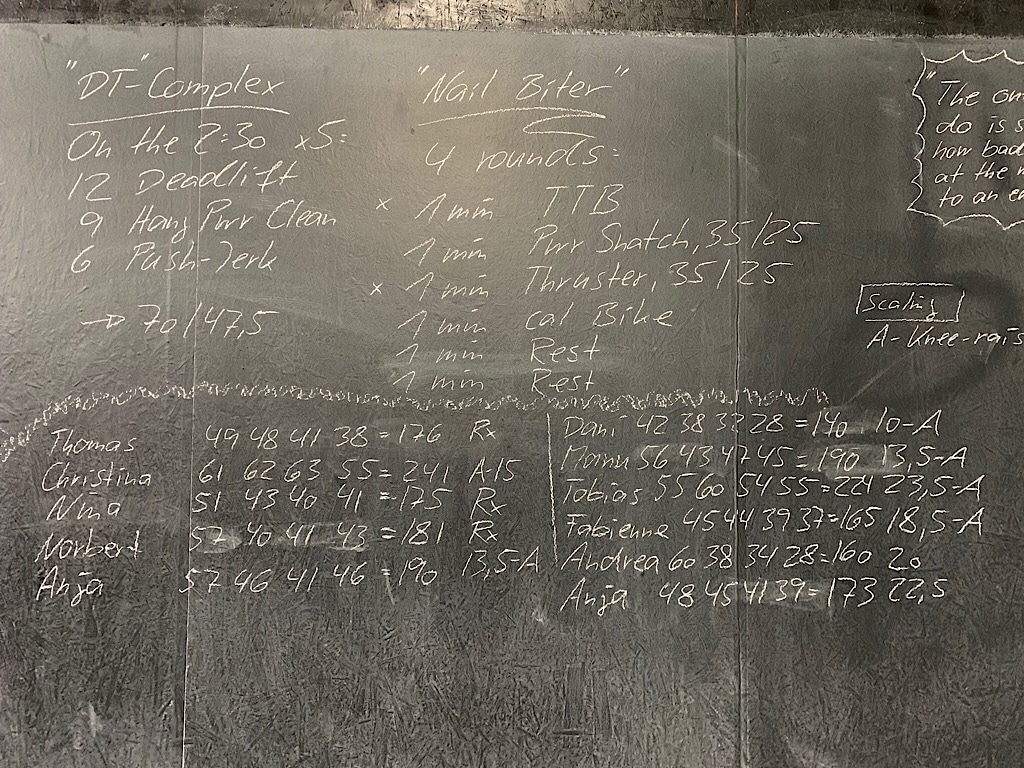 "DT"-Complex
On the 2:30 x5:
12 Deadlift
9 Hang Pwr Clean
6 Push-Jerk
→ 70/47,5
"Nail Biter"
4 rounds:
x 1 min TTB
1 min Pwr Snatch, 35/25
x 1 min Thruster, 35/25
1 min cal Bike
1 min Rest
1 min Rest
"The on
do is s
how bad
at the
to an e
Scaling
A-Knee-rais
Thomas 49 48 41 38 = 176 Rx
Christina 61 62 63 55 = 241 A-15
Nina 51 43 40 41 = 175 Rx
Norbert 57 40 41 43 = 181 Rx
Anja 57 46 41 46 = 190 13,5-A
Dani 42 38 32 28 = 140 10-A
Manu 56 43 47 45 = 190 13,5-A
Tobias 55 60 54 55 = 224 23,5-A
Fabienne 45 44 39 37 = 165 18,5-A
Andrea 60 38 34 28 = 160 20
Anja 48 45 41 39 = 173 22,5